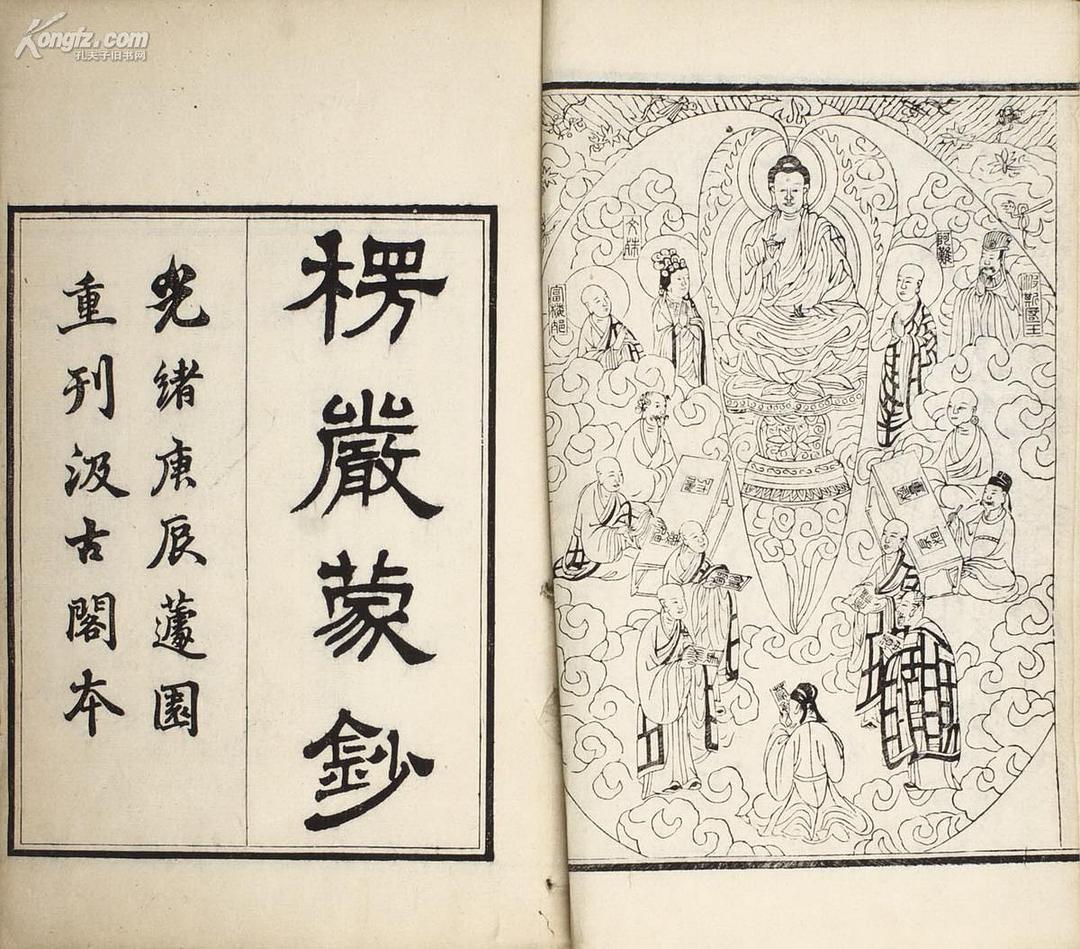 Kongfz.com
孔夫子旧书网
楞嚴蒙鈔
光緒庚辰蘧園
重刊汲古閣本
波斯匿王
阿難
文殊
富樓那